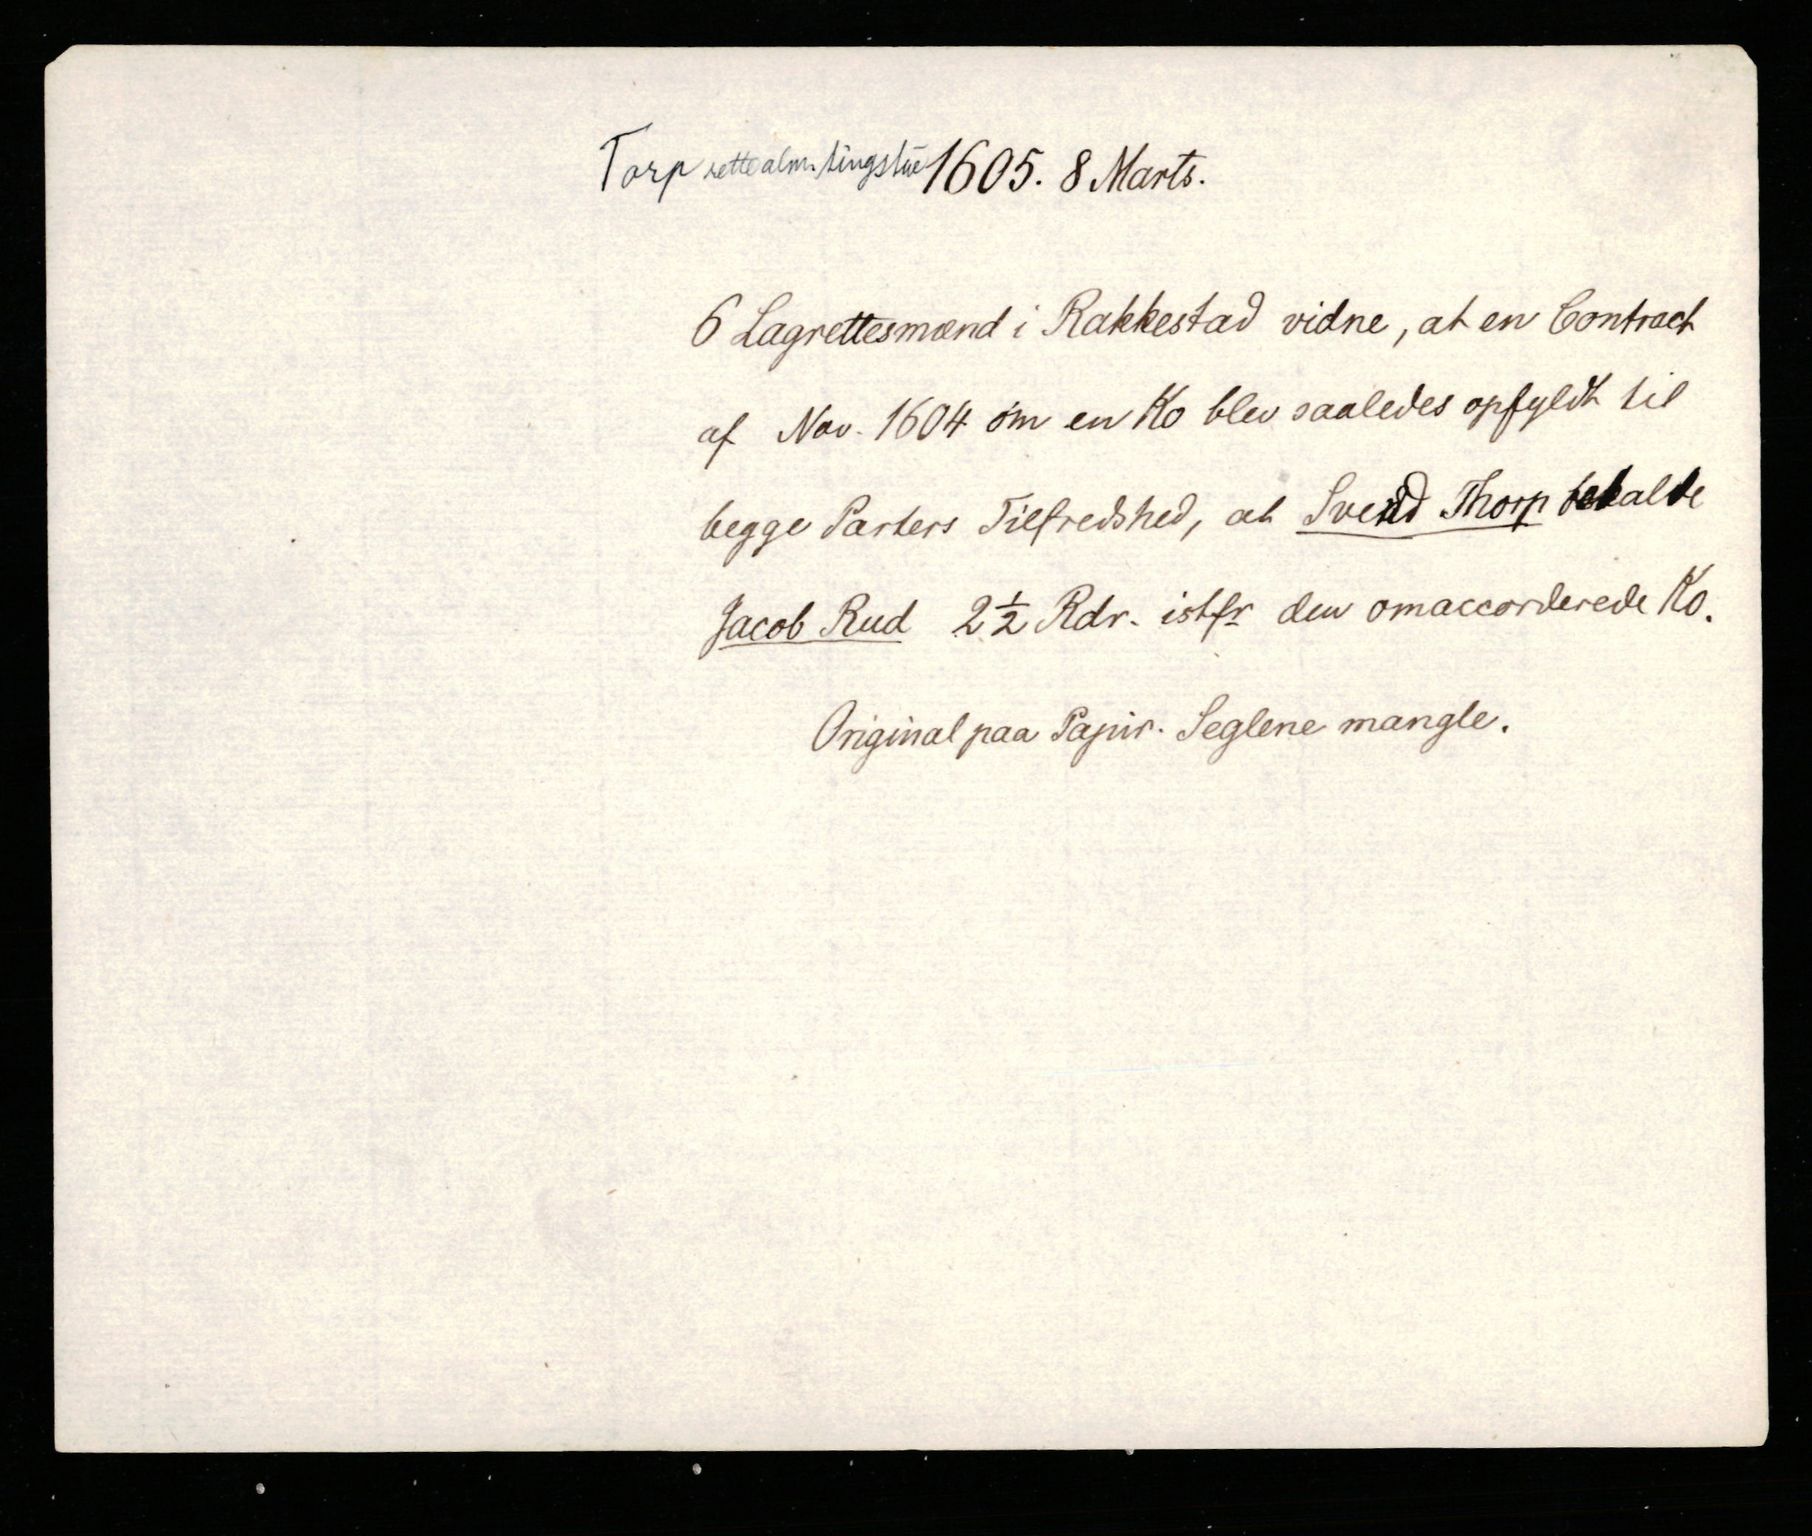 Torp rette alm. tingstue 1605. 8 Marts.
6 Lagrettesmænd i Rakkestad vidne, at en Contract
af Nov. 1604 om en Ko blev saaledes opfyldt til
begge Parters Tilfredshed, at Svend Thorp betalte
Jacob Rud 2 1/2 Rdr. istfr den omaccorderede Ko.
Original paa Papir. Seglene mangle.